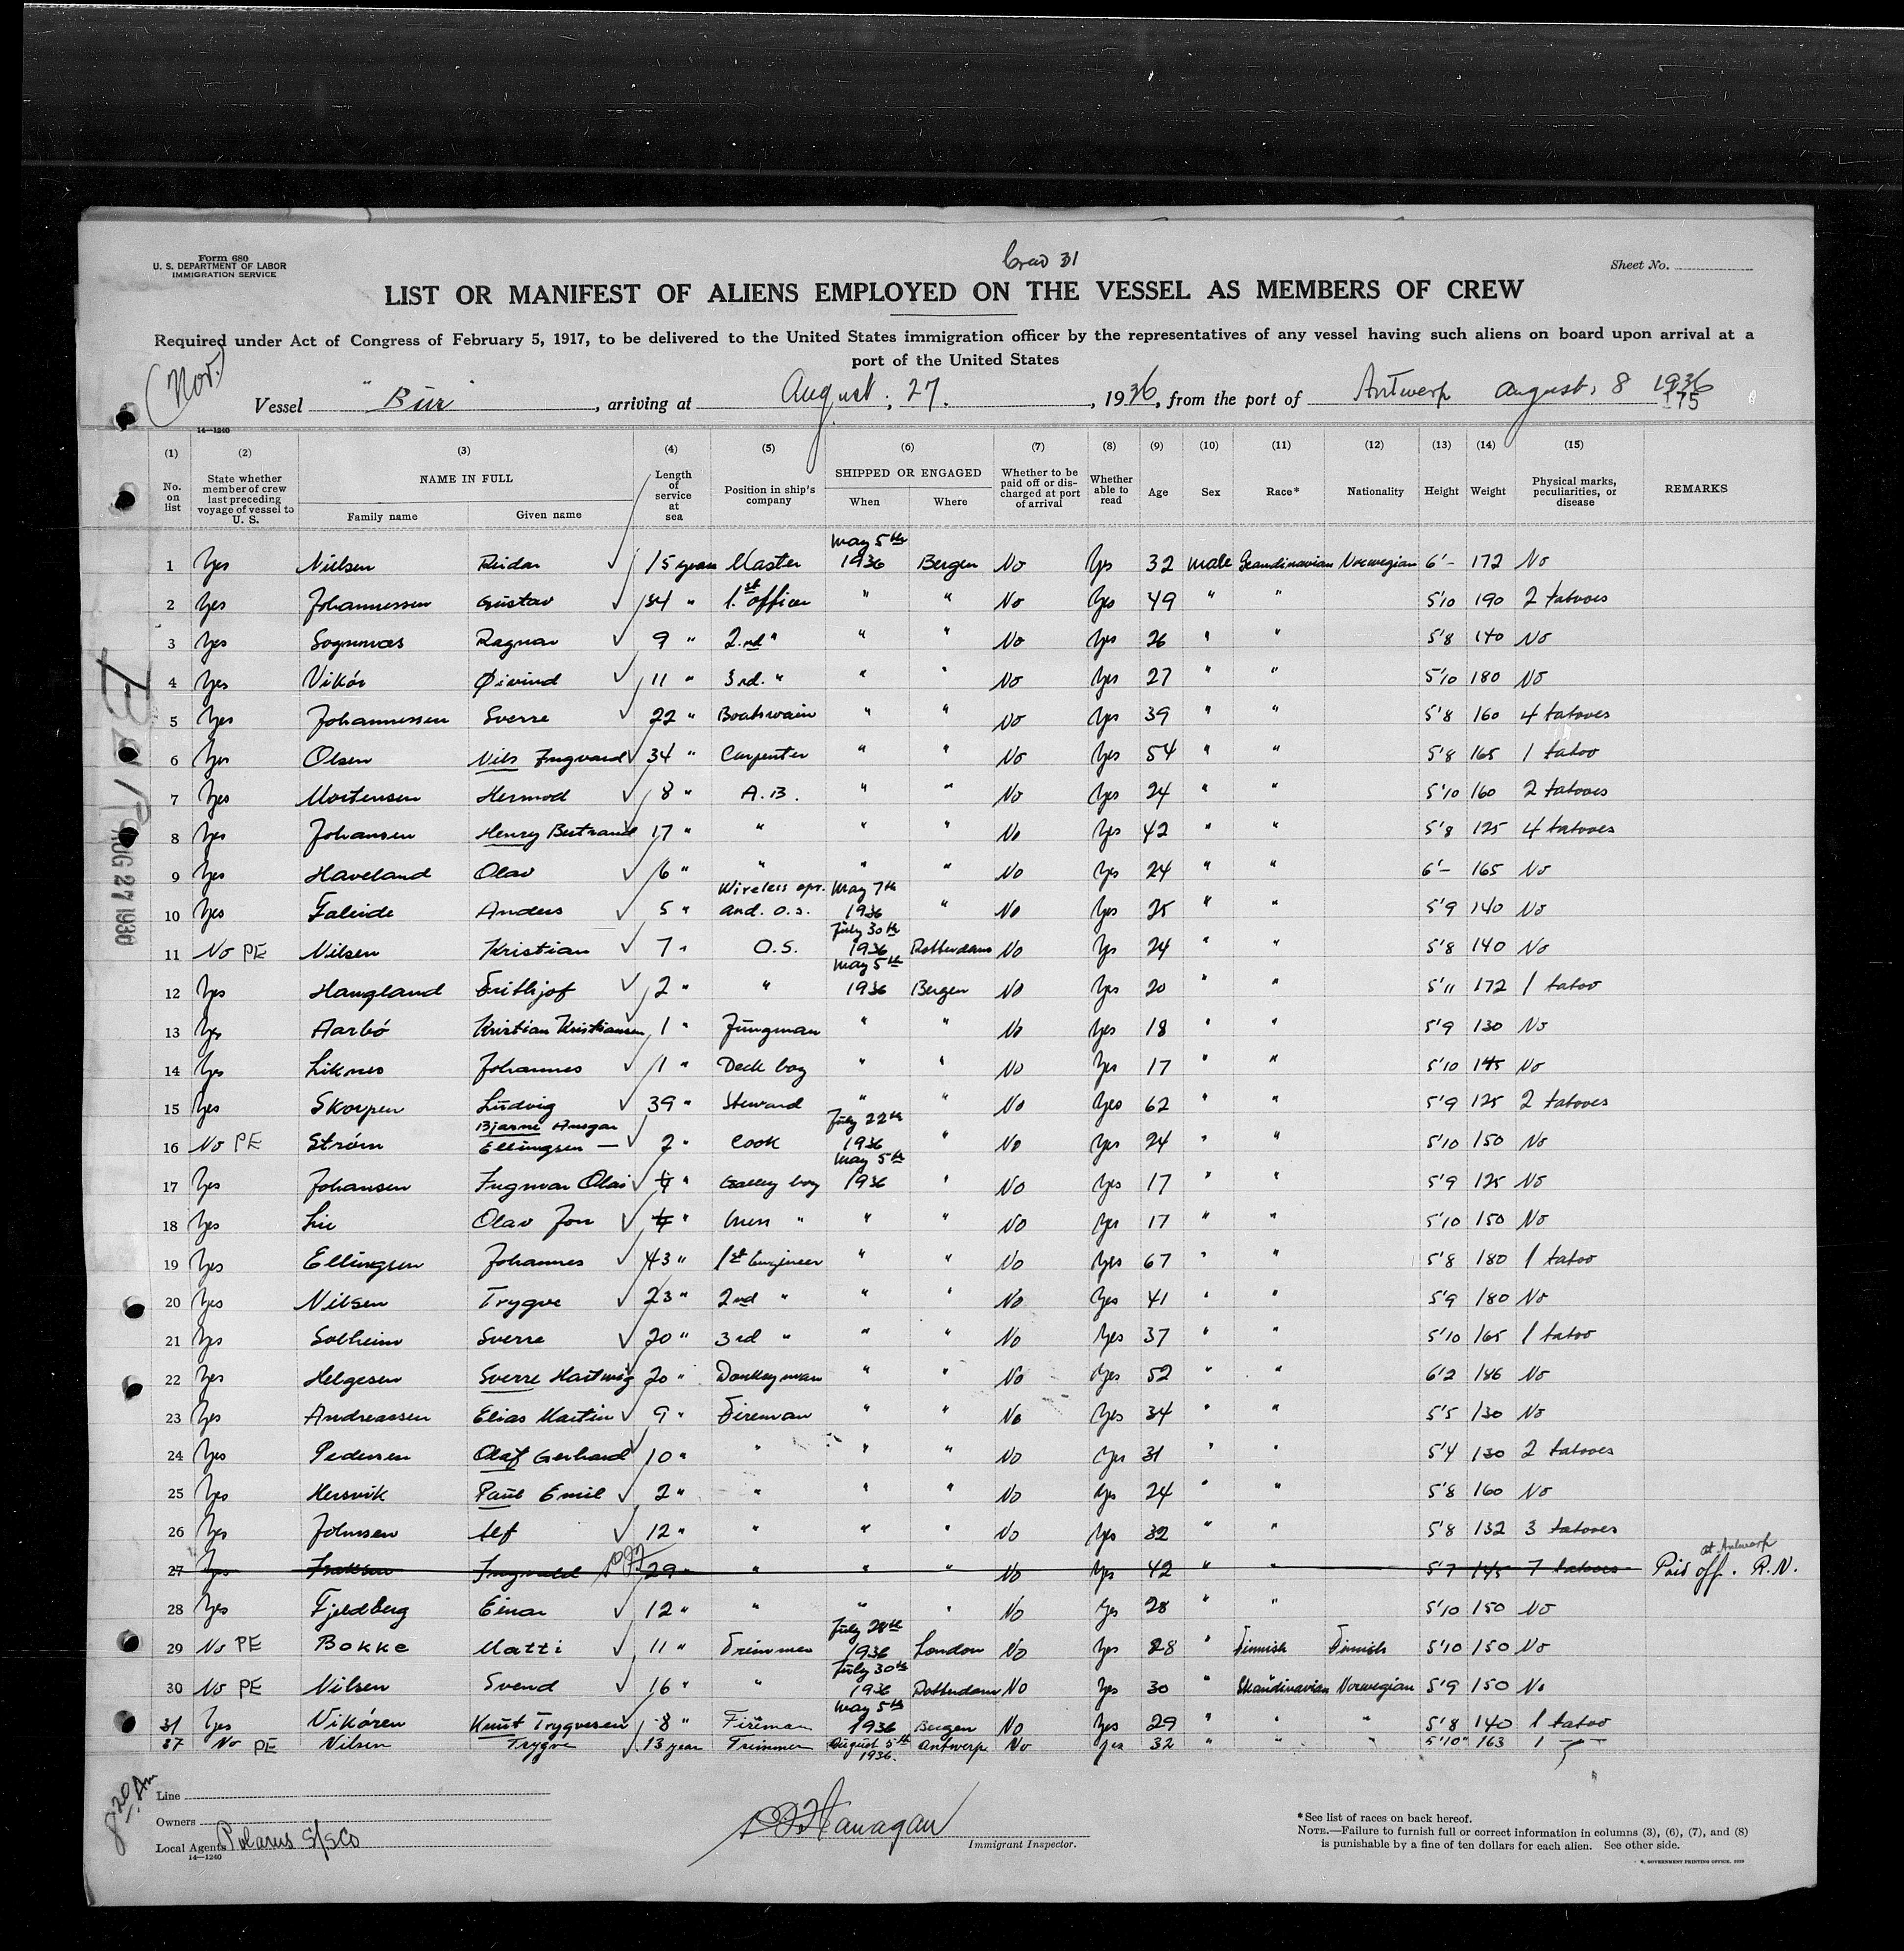 Form 680
U. S. DEPARTMENT OF LABOR
IMMIGRATION SERVICE
Crew 31
Sheet No.
LIST OR MANIFEST OF ALIENS EMPLOYED ON THE VESSEL AS MEMBERS OF CREW
Required under Act of Congress of February 5, 1917, to be delivered to the United States immigration officer by the representatives of any vessel having such aliens on board upon arrival at a
port of the United States
(Nor.)
Vessel "Bur", arriving at August, 27., 1936, from the port of Antwerp August, 8 1936
175
14—1240
(1) (2) (3) (4) (5) (6) (7) (8) (9) (10) (11) (12) (13) (14) (15)
No. on list
State whether member of crew last preceding voyage of vessel to U. S.
NAME IN FULL
Family name Given name
Length of service at sea
Position in ship's company
SHIPPED OR ENGAGED
When Where
Whether to be paid off or discharged at port of arrival
Whether able to read
Age Sex Race* Nationality Height Weight
Physical marks, peculiarities, or disease
REMARKS
1 Yes Nielsen Reidar 15 years Master May 5th 1936 Bergen No Yes 32 male Scandinavian Norwegian 6'– 172 No
2 Yes Johannessen Gustav 34 " 1.st officer " " No Yes 49 " " 5'10 190 2 tatooes
3 Yes Sognnæs Ragnar 9 " 2.nd " " " No Yes 26 " " 5'8 140 No
4 Yes Vikör Øivind 11 " 3rd. " " " No Yes 27 " " 5'10 180 No
5 Yes Johannessen Sverre 22 " Boatswain " " No Yes 39 " " 5'8 160 4 tatooes
6 Yes Olsen Nils Ingvard 34 " Carpenter " " No Yes 54 " " 5'8 165 1 tatoo
7 Yes Mortensen Hermod 8 " A.B. " " No Yes 24 " " 5'10 160 2 tatooes
8 Yes Johansen Henry Bertrand 17 " " " " No Yes 42 " " 5'8 125 4 tatooes
9 Yes Haveland Olav 6 " " " " No Yes 24 " " 6'– 165 No
10 Yes Anders 5 " Wireless opr. and. O.S. May 7th 1936 " No Yes 25 " " 5'9 140 No
11 No PE Nilsen Kristian 7 " O.S. July 30th 1936 Rotterdam No Yes 24 " " 5'8 140 No
12 Yes Haugland Frithjof 2 " " May 5th 1936 Bergen No Yes 20 " " 5'11 172 1 tatoo
13 Yes Aarbö Kristian Kristiansen 1 " Jungman " " No Yes 18 " " 5'9 130 No
14 Yes Liknes Johannes 1 " Deck boy " " No Yes 17 " " 5'10 145 No
15 Yes Skorpen Ludvig 39 " Steward " " No Yes 62 " " 5'9 125 2 tatooes
16 No PE Ström Bjarne Ansgar Ellingsen — 2 " Cook July 22th 1936 " No Yes 24 " " 5'10 150 No
17 Yes Johansen Ingvar Olai " Galley boy May 5th 1936 " No Yes 17 " " 5'9 125 No
18 Yes Lie Olav Jon " Mess " " " No Yes 17 " " 5'10 150 No
19 Yes Ellingsen Johannes 43 " 1st Engineer " " No Yes 67 " " 5'8 180 1 tatoo
20 Yes Nilsen Trygve 23 " 2nd " " " No Yes 41 " " 5'9 180 No
21 Yes Solheim Sverre 20 " 3rd " " " No Yes 37 " " 5'10 165 1 tatoo
22 Yes Helgesen Sverre Hartwig 20 " Donkeyman " " No Yes 52 " " 6'2 186 No
23 Yes Andreassen Elias Martin 9 " Fireman " " No Yes 34 " " 5'5 130 No
24 Yes Pedersen Olaf Gerhard 10 " " " " No Yes 31 " " 5'4 130 2 tatooes
25 Yes Hersvik Paul Emil 2 " " " " No Yes 24 " " 5'8 160 No
26 Yes Johnsen Alf 12 " " " " No Yes 32 " " 5'8 132 3 tatooes
27 Yes Ingvald 29 " " " " No Yes 42 " " 5'7 145 7 tatooes Paid off at Antwerp. R.N.
28 Yes Fjeldberg Einar 12 " " " " No Yes 28 " " 5'10 150 No
29 No PE Bokke Matti 11 " Trimmer July 28th 1936 London No Yes 28 " Finnish Finnish 5'10 150 No
30 No PE Nilsen Svend 16 " " July 30th 1936 Rotterdam No Yes 30 " Skandinavian Norwegian 5'9 150 No
31 Yes Vikören Knut Trygvesen 8 " Fireman May 5th 1936 Bergen No Yes 29 " " " 5'8 140 1 tatoo
37 No PE Nilsen Trygve 13 year Trimmer August 5th 1936. Antwerp No Yes 32 " " " 5'10" 163 1
AUG 27 1936
8 20 Am
Line
Owners
Local Agents Polarus S/S Co
14—1240
Flanagan
Immigrant Inspector.
*See list of races on back hereof.
NOTE.—Failure to furnish full or correct information in columns (3), (6), (7), and (8)
is punishable by a fine of ten dollars for each alien. See other side.